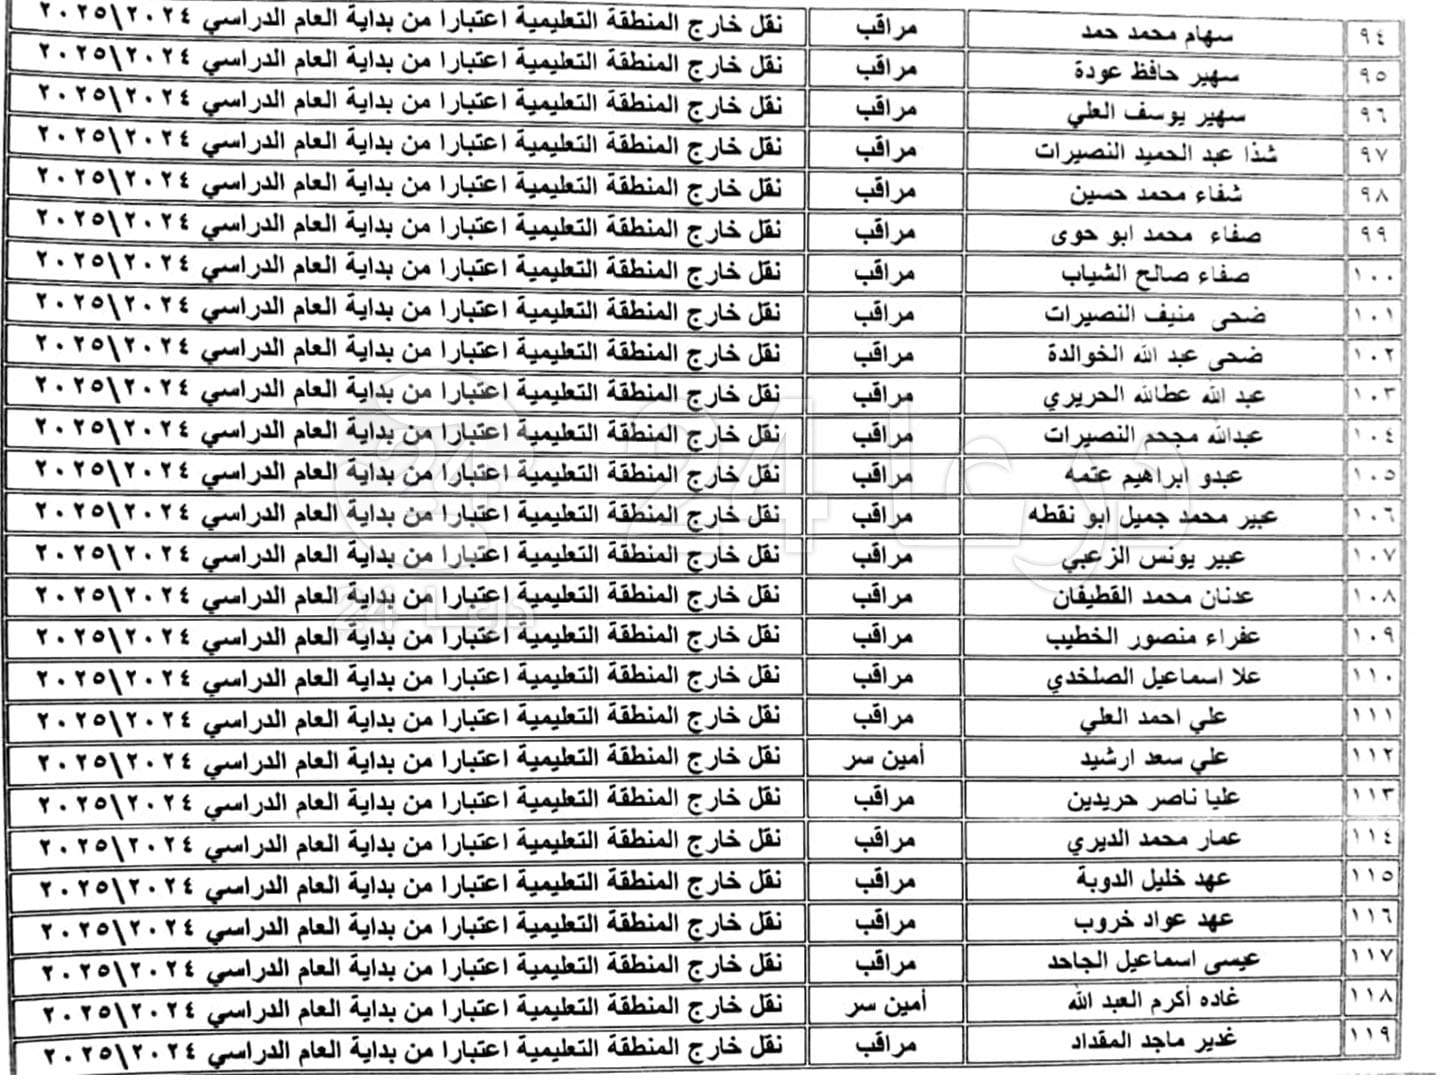 ٩٤ سهام محمد حمد مراقب نقل خارج المنطقة التعليمية اعتبارا من بداية العام الدراسي ٢٠٢٤\٢٠٢٥
٩٥ سهير حافظ عودة مراقب نقل خارج المنطقة التعليمية اعتبارا من بداية العام الدراسي ٢٠٢٤\٢٠٢٥
٩٦ سهير يوسف العلي مراقب نقل خارج المنطقة التعليمية اعتبارا من بداية العام الدراسي ٢٠٢٤\٢٠٢٥
٩٧ شذا عبد الحميد النصيرات مراقب نقل خارج المنطقة التعليمية اعتبارا من بداية العام الدراسي ٢٠٢٤\٢٠٢٥
٩٨ شفاء محمد حسين مراقب نقل خارج المنطقة التعليمية اعتبارا من بداية العام الدراسي ٢٠٢٤\٢٠٢٥
٩٩ صفاء محمد ابو حوى مراقب نقل خارج المنطقة التعليمية اعتبارا من بداية العام الدراسي ٢٠٢٤\٢٠٢٥
١٠٠ صفاء صالح الشياب مراقب نقل خارج المنطقة التعليمية اعتبارا من بداية العام الدراسي ٢٠٢٤\٢٠٢٥
١٠١ ضحى منيف النصيرات مراقب نقل خارج المنطقة التعليمية اعتبارا من بداية العام الدراسي ٢٠٢٤\٢٠٢٥
١٠٢ ضحى عبد الله الخوالدة مراقب نقل خارج المنطقة التعليمية اعتبارا من بداية العام الدراسي ٢٠٢٤\٢٠٢٥
١٠٣ عبد الله عطالله الحريري مراقب نقل خارج المنطقة التعليمية اعتبارا من بداية العام الدراسي ٢٠٢٤\٢٠٢٥
١٠٤ عبدالله مجحم النصيرات مراقب نقل خارج المنطقة التعليمية اعتبارا من بداية العام الدراسي ٢٠٢٤\٢٠٢٥
١٠٥ عبدو ابراهيم عتمه مراقب نقل خارج المنطقة التعليمية اعتبارا من بداية العام الدراسي ٢٠٢٤\٢٠٢٥
١٠٦ عبير محمد جميل ابو نقطه مراقب نقل خارج المنطقة التعليمية اعتبارا من بداية العام الدراسي ٢٠٢٤\٢٠٢٥
١٠٧ عبير يونس الزعبي مراقب نقل خارج المنطقة التعليمية اعتبارا من بداية العام الدراسي ٢٠٢٤\٢٠٢٥
١٠٨ عدنان محمد القطيفان مراقب نقل خارج المنطقة التعليمية اعتبارا من بداية العام الدراسي ٢٠٢٤\٢٠٢٥
١٠٩ عفراء منصور الخطيب مراقب نقل خارج المنطقة التعليمية اعتبارا من بداية العام الدراسي ٢٠٢٤\٢٠٢٥
١١٠ علا اسماعيل الصلخدي مراقب نقل خارج المنطقة التعليمية اعتبارا من بداية العام الدراسي ٢٠٢٤\٢٠٢٥
١١١ علي احمد العلي مراقب نقل خارج المنطقة التعليمية اعتبارا من بداية العام الدراسي ٢٠٢٤\٢٠٢٥
١١٢ علي سعد ارشيد أمين سر نقل خارج المنطقة التعليمية اعتبارا من بداية العام الدراسي ٢٠٢٤\٢٠٢٥
١١٣ عليا ناصر حريدين مراقب نقل خارج المنطقة التعليمية اعتبارا من بداية العام الدراسي ٢٠٢٤\٢٠٢٥
١١٤ عمار محمد الديري مراقب نقل خارج المنطقة التعليمية اعتبارا من بداية العام الدراسي ٢٠٢٤\٢٠٢٥
١١٥ عهد خليل الدوبة مراقب نقل خارج المنطقة التعليمية اعتبارا من بداية العام الدراسي ٢٠٢٤\٢٠٢٥
١١٦ عهد عواد خروب مراقب نقل خارج المنطقة التعليمية اعتبارا من بداية العام الدراسي ٢٠٢٤\٢٠٢٥
١١٧ عيسى اسماعيل الجاحد مراقب نقل خارج المنطقة التعليمية اعتبارا من بداية العام الدراسي ٢٠٢٤\٢٠٢٥
١١٨ غاده أكرم العبد الله أمين سر نقل خارج المنطقة التعليمية اعتبارا من بداية العام الدراسي ٢٠٢٤\٢٠٢٥
١١٩ غدير ماجد المقداد مراقب نقل خارج المنطقة التعليمية اعتبارا من بداية العام الدراسي ٢٠٢٤\٢٠٢٥
درعا 24